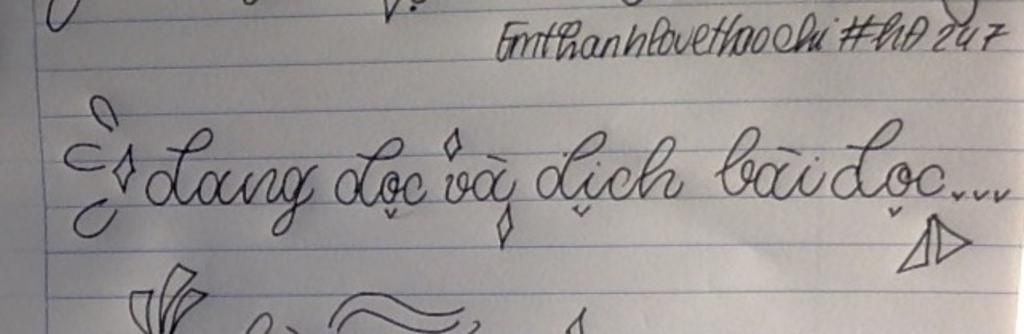 EmthanhlovethaoChi #hA 247
đang đọc và dịch bài đọc...